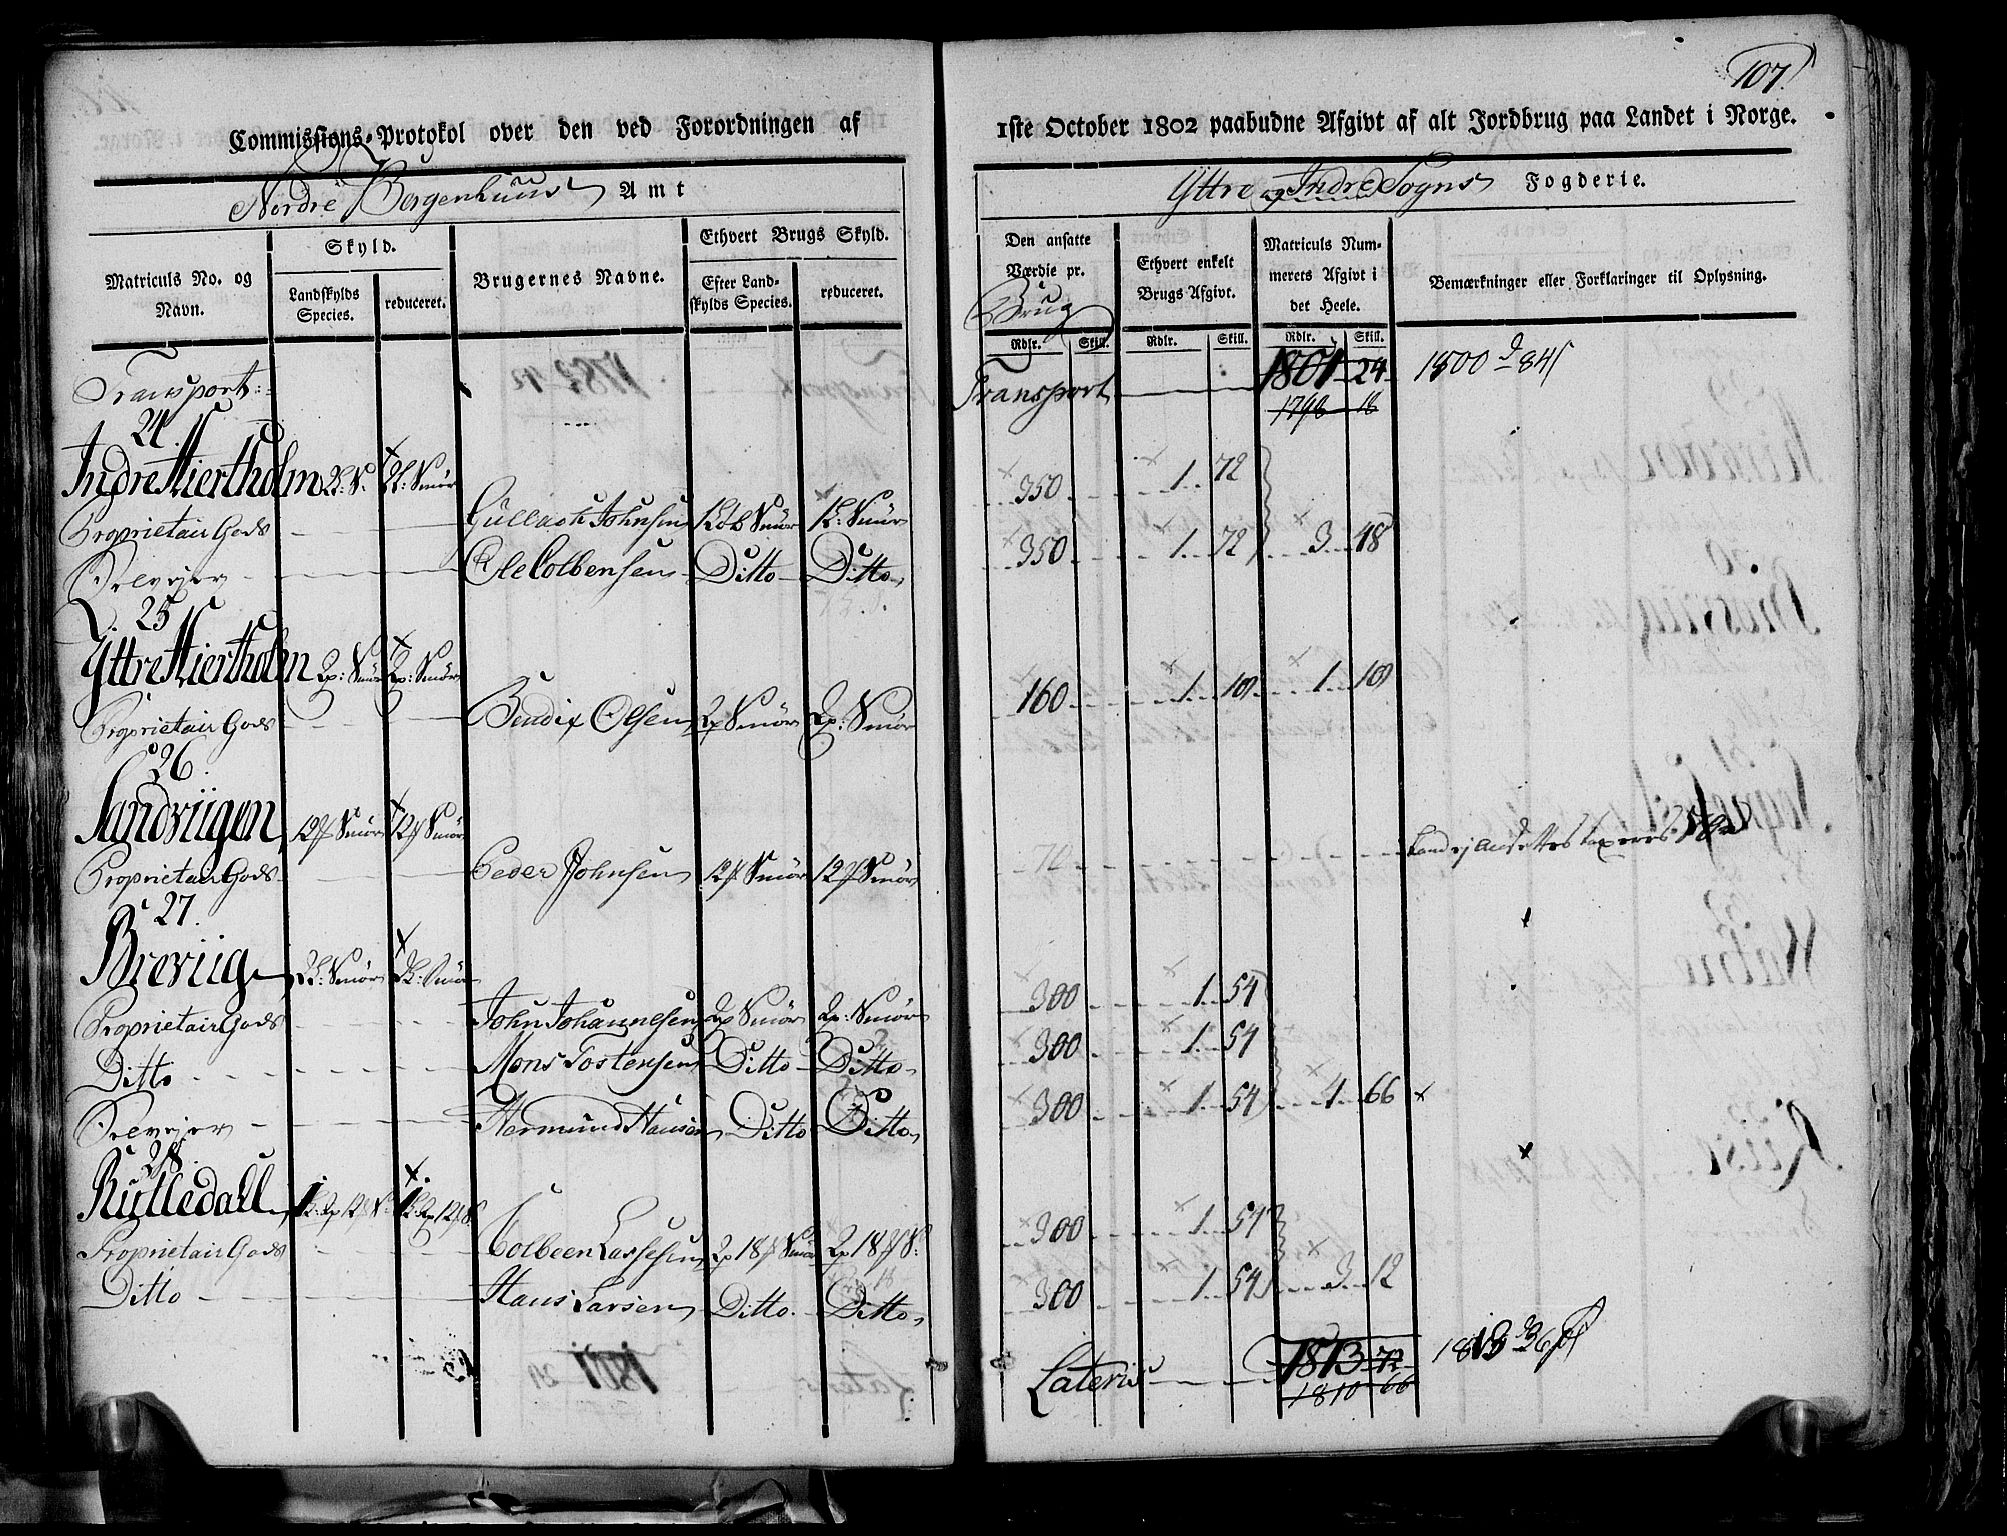 107.
Commissions-Protokol over den ved Forordningen af
1ste October 1802 paabudne Afgivt af alt Jordbrug paa Landet i Norge.
Nordre Bergenhuus Amt
Yttre og Indre Sogns Fogderie.
Matriculs No. og Navn.
Skyld.
Landskylds Species.
reduceret.
Brugernes Navne.
Ethvert Brugs Skyld.
Efter Landskylds Species.
reduceret.
Den ansatte Værdie pr. Brug
Ethvert enkelt Brugs Afgivt.
Matriculs Nummerets Afgivt i det Heele.
Bemærkninger eller Forklaringer til Oplysning.
Rdlr. Skill. Rdlr. Skill. Rdlr. Skill.
Transport Transport 1801 24 1800 d 84
1798 18
24.
Indre Hiertholm
Proprietair Gods Gullach Johnsen Smør 350 1 72
Selveyer Ole Colbensen Ditto Ditto 350 1 72 3 48
25
Yttre Hiertholm Smør Smør
Proprietair Gods Bendix Olsen Smør Smør 160 1 1
26
Sandviigen 12 Smør 12 Smør
Proprietair Gods Peder Johnsen 12 Smør 12 Smør 70
27.
Breviig Smør Smør
Proprietair Gods John Johannesen Smør Smør 300 1 54
Ditto Mons Tostensen Ditto Ditto 300 1 54
Selveyer Hermund Hansen Ditto Ditto 300 1 54 4 66
28.
Rutledall
Proprietair Gods Colbeen Lassesen 18 Smør 18 S: 300 1 54
Ditto Hans Larsen Ditto Ditto 300 1 54 3 12
Lateris 1813 72
1810 66